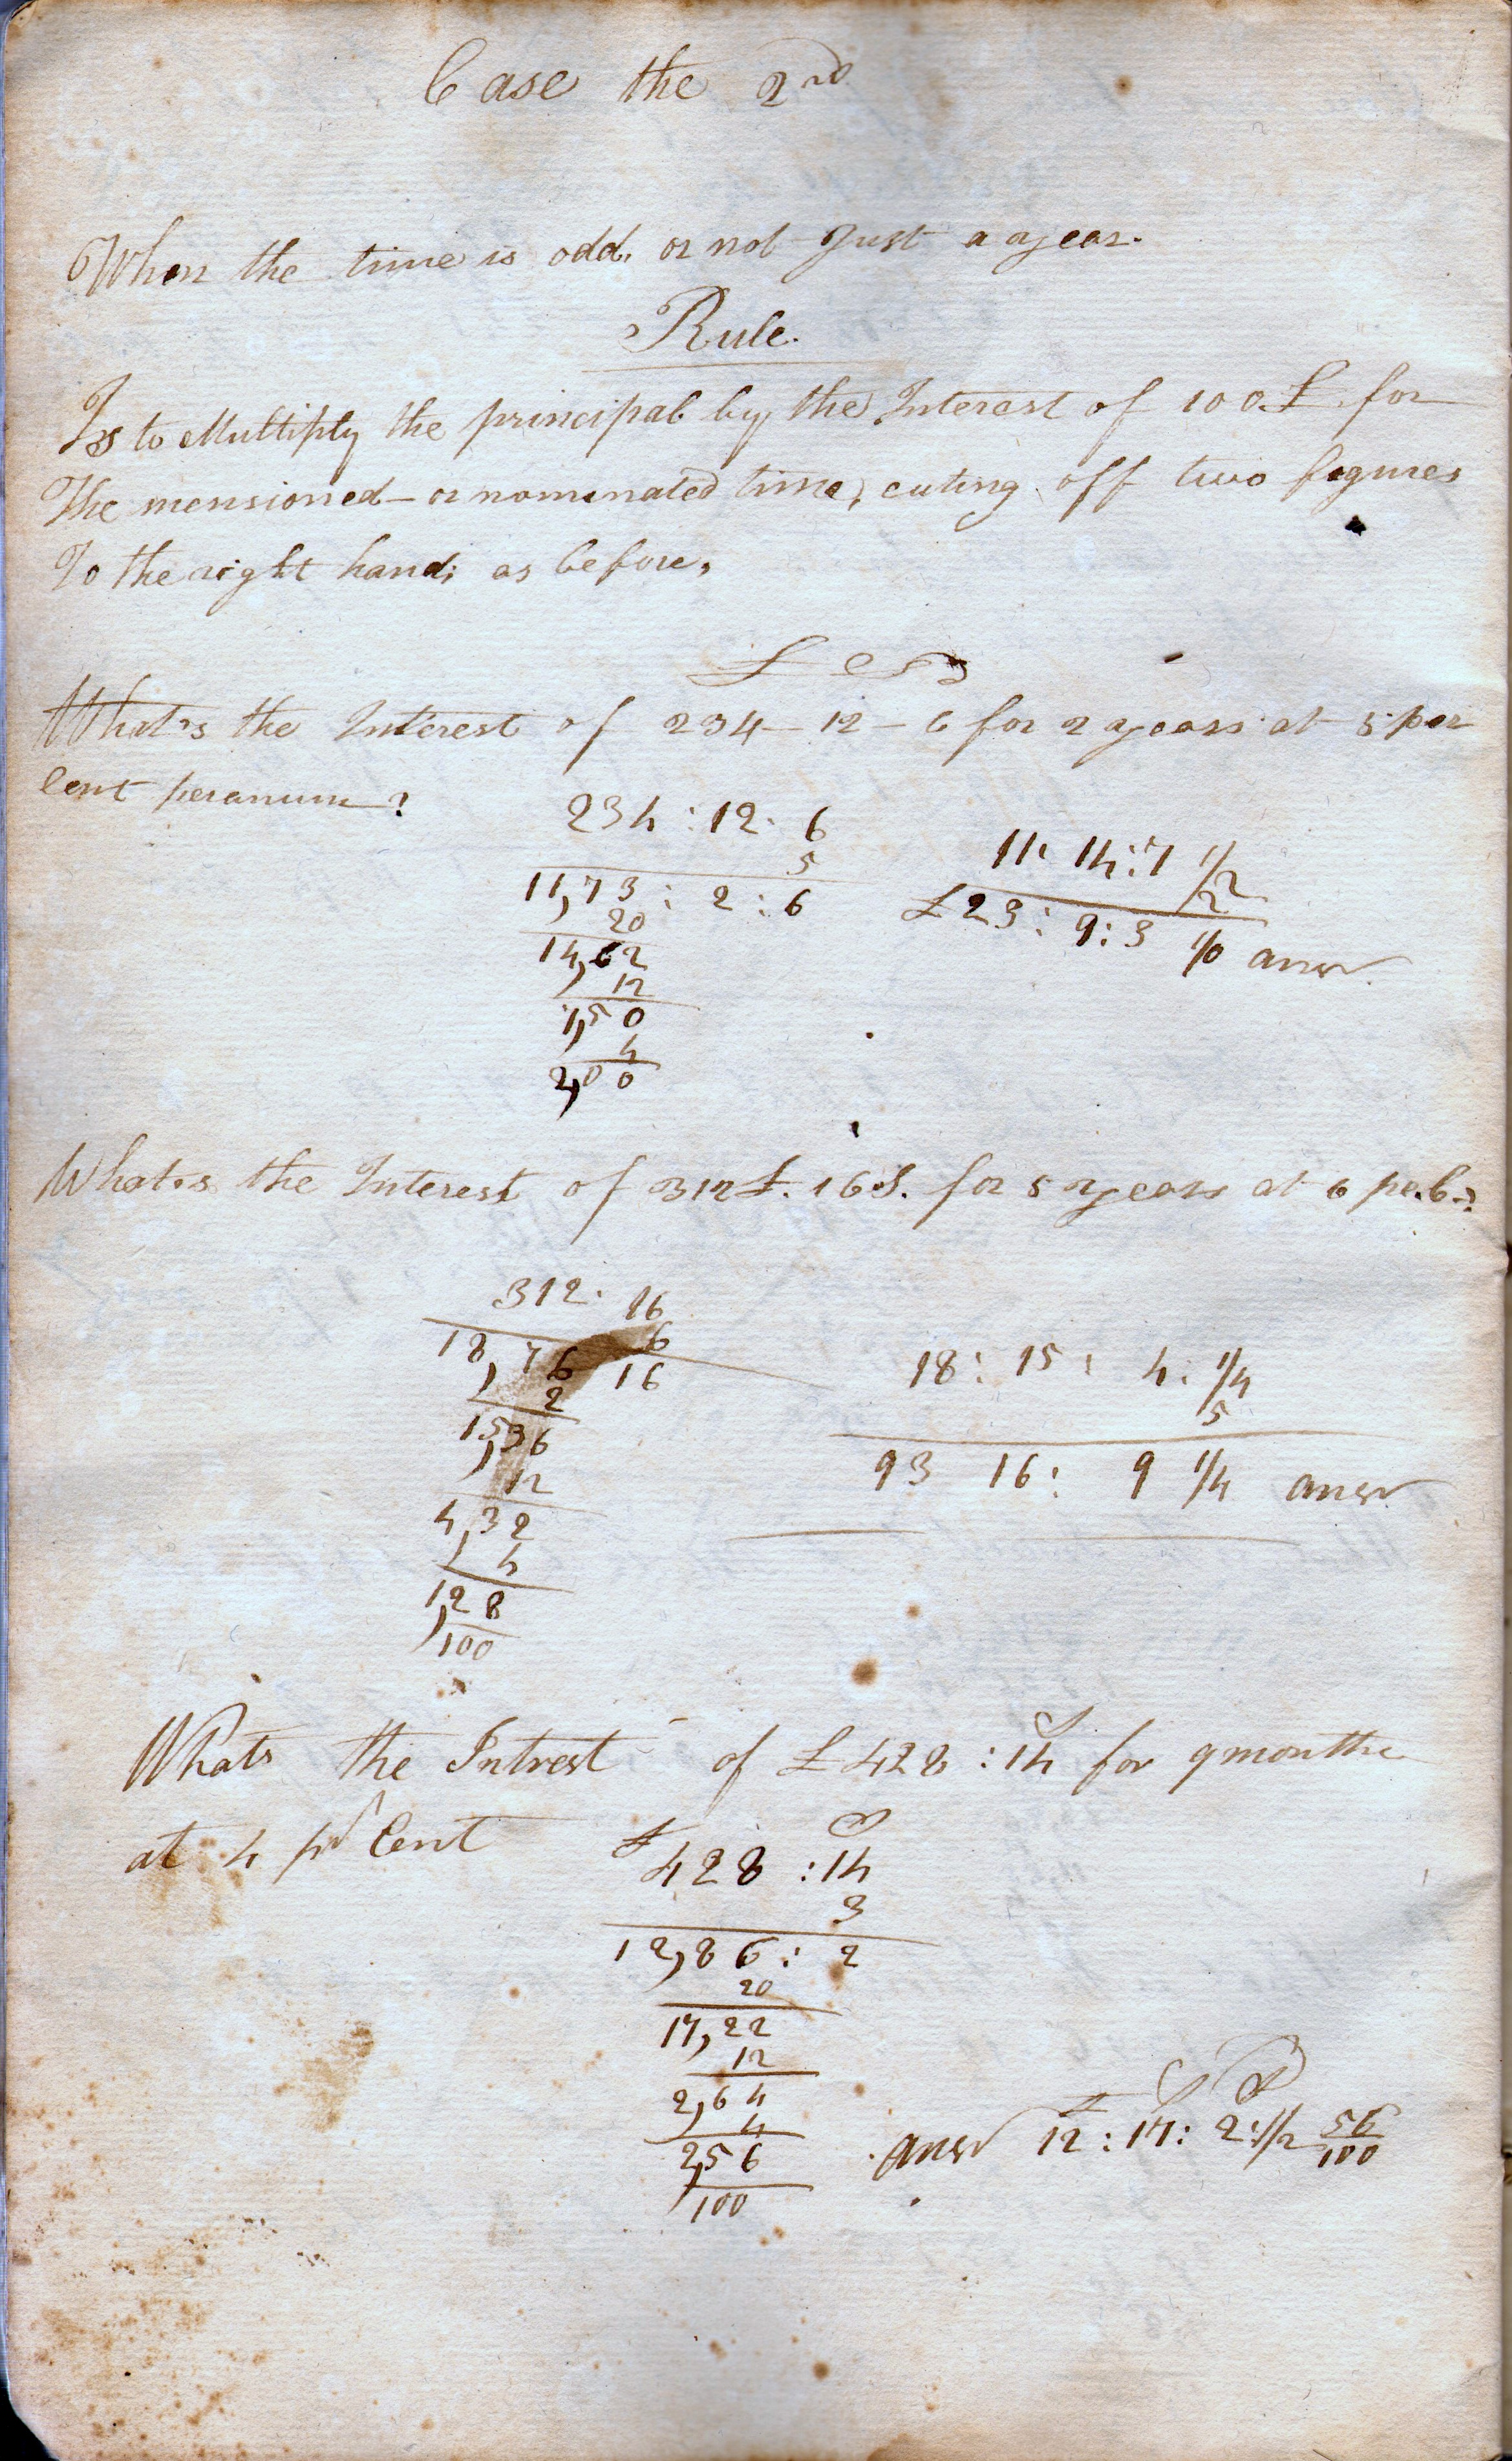 Case the 2nd
When the time is odd, or not Just a year.
Rule.
Is to Multiply the principal by the Interest of 100£ for
The mensioned - or nominated time, cuting off two figures
To the right hand; as before,
£
What's the Interest of 234 - 12 - 6 for 2 years at 5 per
Cent peranum?
234 : 12 : 6
5
11,73 : 2 : 6
20
14,62
12
7,50
4
2,00
11 : 14 : 7 1/2
2
£23 : 9 : 3 1/0 answ
What's the Interest of 312£. 16S. for 5 years at 6 pe.C.?
312. 16
6
18,76 16
2
15,36
12
4,32
4
1,28
100
18 : 15 : 4 : 1/4
5
93 16 : 9 1/4 answ
Whats the Intrest of £428 : 14 for 9 months
at 4 pr Cent
£ S
428 : 14
3
12,86 : 2
20
17,22
12
2,64
4
2,56
100
£ S D
answ 12 : 17 : 2 : 1/2 56/100